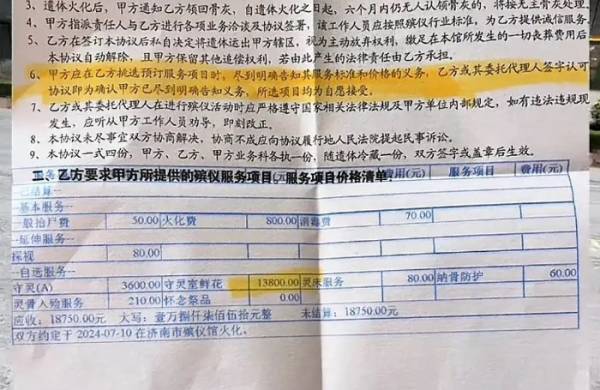 3、遗体火化后,甲方通知乙方领回骨灰,自遗体火化之日起,六个月内仍无人认领骨灰的,将按无主骨灰处理。
4、甲方指派责任人与乙方进行各项业务洽谈及协议签署,该工作人员应按照殡仪行业标准,为乙方提供诚信服务
5、乙方在签订本协议后私自决定将遗体运出甲方辖区,视为主动放弃权利,缴足在本馆所发生的一切丧葬费用后
本协议自动解除,且甲方保留其他追偿权利,若由此产生的法律责任由乙方承担。
6、甲方应在乙方挑选预订服务项目时,尽到明确告知其服务标准和价格的义务,乙方或其委托代理人签字认可
协议即为确认甲方已尽到明确告知义务,所选项目均为自愿接受。
7、乙方或其委托代理人在进行殡仪活动时应严格遵守国家相关法律法规及甲方单位内部规定,如有违法违规现
发生,应听从甲方工作人员劝导,即刻改正。
8、本协议未尽事宜双方协商解决,协商不成应向协议履行地人民法院提起民事诉讼。
9、本协议一式四份,甲方、乙方、甲方业务科各执一份,随遗体冷藏一份,双方签字或盖章后生效。
二、乙方要求甲方所提供的殡仪服务项目、服务项目价格清单:
费用(元) 服务项目 费用(元)
--已结算--
--基本服务--
一般抬尸费 50.00 火化费 800.00 消毒费 70.00
--延伸服务--
探视 80.00
--自选服务--
守灵(A) 3600.00 守灵室鲜花 13800.00 灵床服务 80.00 纳骨防护 60.00
灵骨入殓服务 210.00 怀念祭品 0.00
应收:18750.00元 大写:壹万捌仟柒佰伍拾元整 未结算:18750.00元
双方约定于 2024-07-10 在济南市殡仪馆火化。